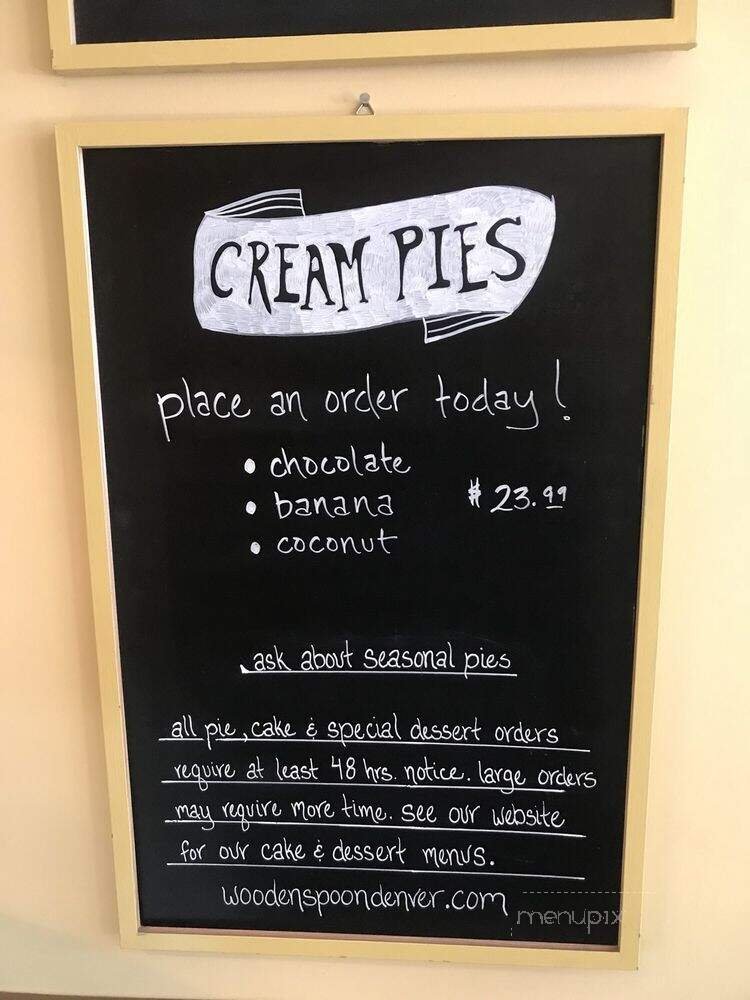 CREAM PIES
place an order today!
• chocolate
• banana $23.99
• coconut
ask about seasonal pies
all pie, cake & special dessert orders
require at least 48 hrs. notice. large orders
may require more time. see our website
for our cake & dessert menus.
woodenspoondenver.com
menupix